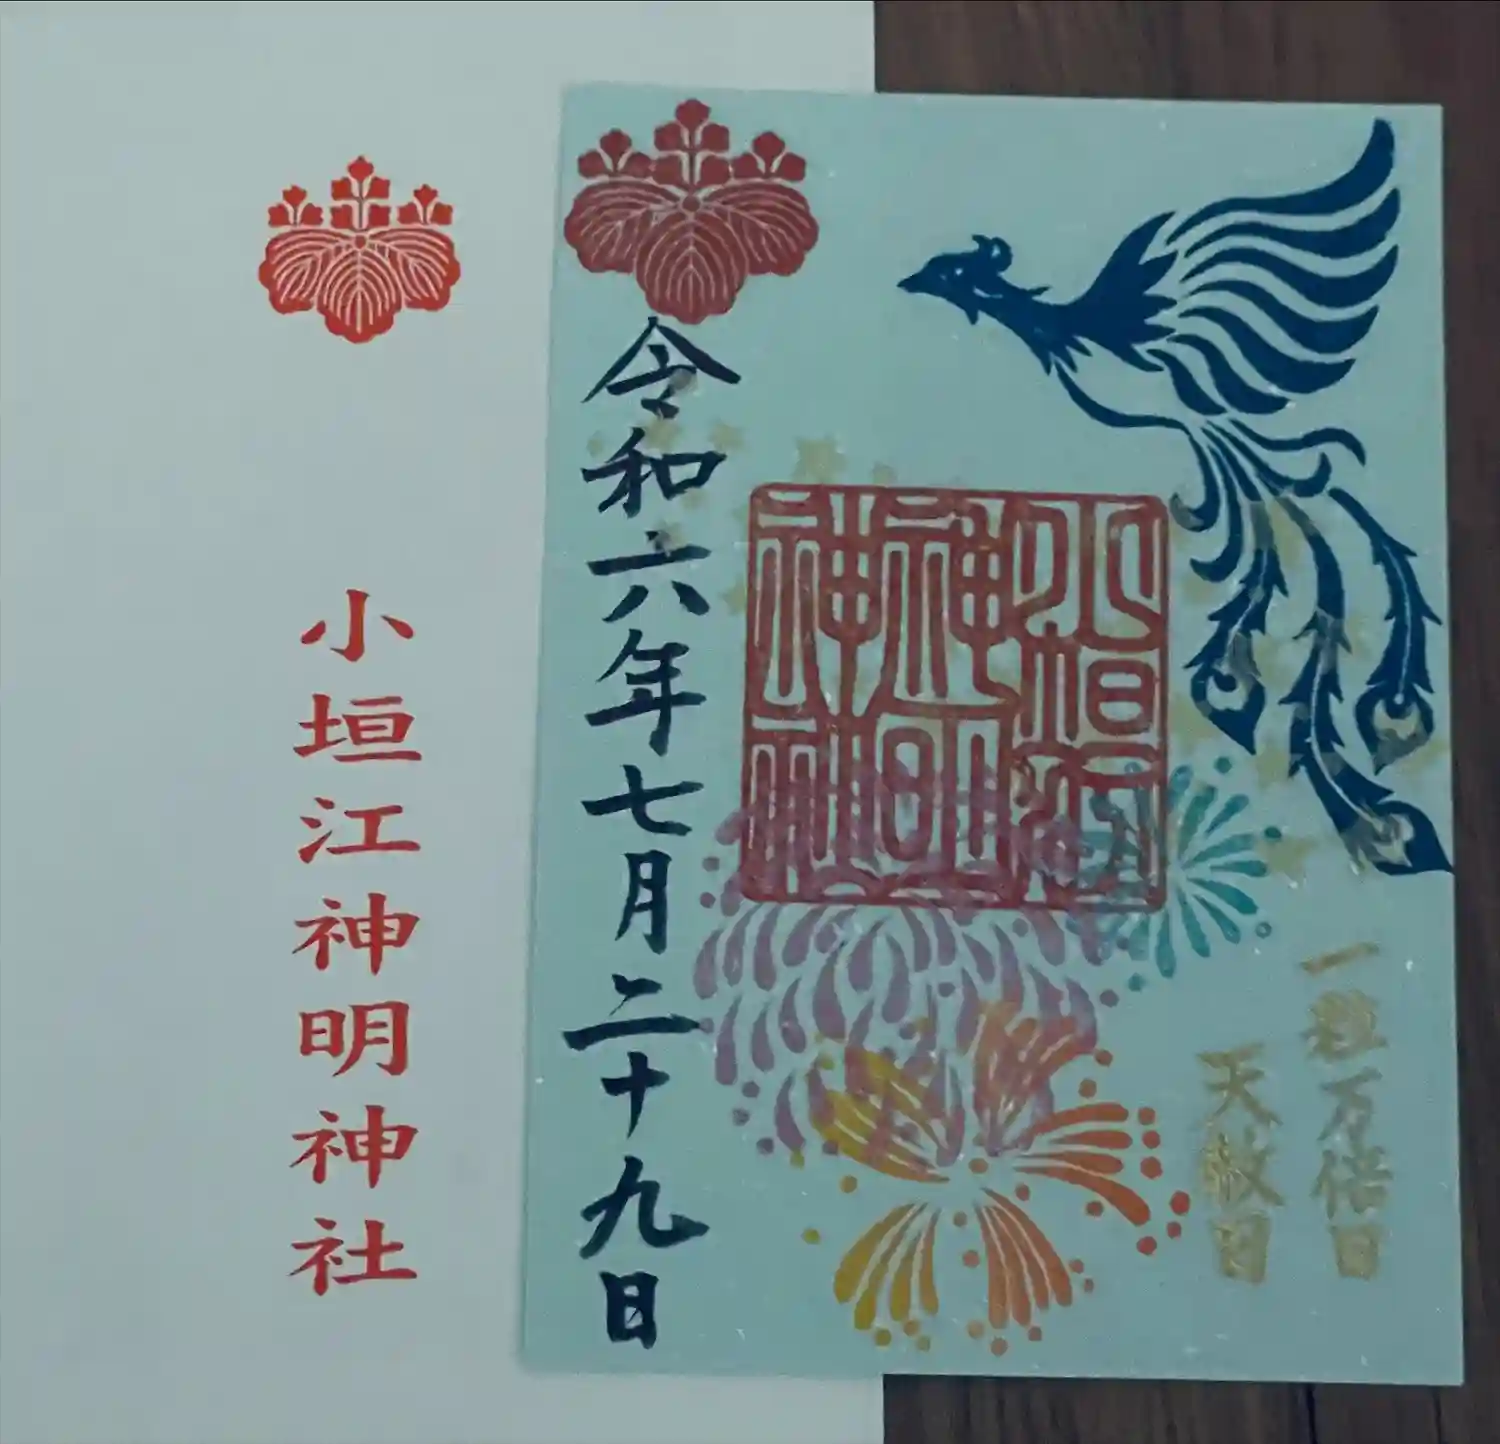 小垣江神明神社
令和六年七月二十九日
小垣江神明神社
一粒万倍日
天赦日